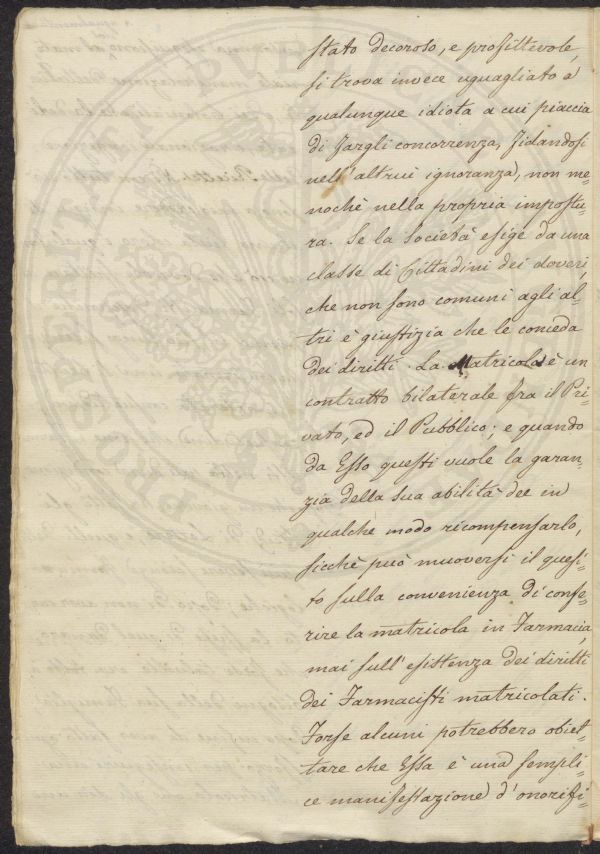 stato decoroso, e profittevole,
si trova invece uguagliato a
qualunque idiota a cui piaccia
di fargli concorrenza, fidandosi
nell'altrui ignoranza, non me-
nochè nella propria impostu-
ra. Se la Società esige da una
classe di Cittadini dei doveri,
che non sono comuni agli al-
tri è giustizia che le conceda
dei diritti. La Matricola è un
contratto bilaterale fra il Pri-
vato, ed il Pubblico; e quando
da Esso questi vuole la garan-
zia della sua abilità dee in
qualche modo ricompensarlo,
sicchè può muoversi il quesi-
to sulla convenienza di confe-
rire la matricola in Farmacia,
mai sull'esistenza dei diritti
dei Farmacisti matricolati.
Forse alcuni potrebbero obiet-
tare che Essa è una sempli-
ce manifestazione d'onorifi-